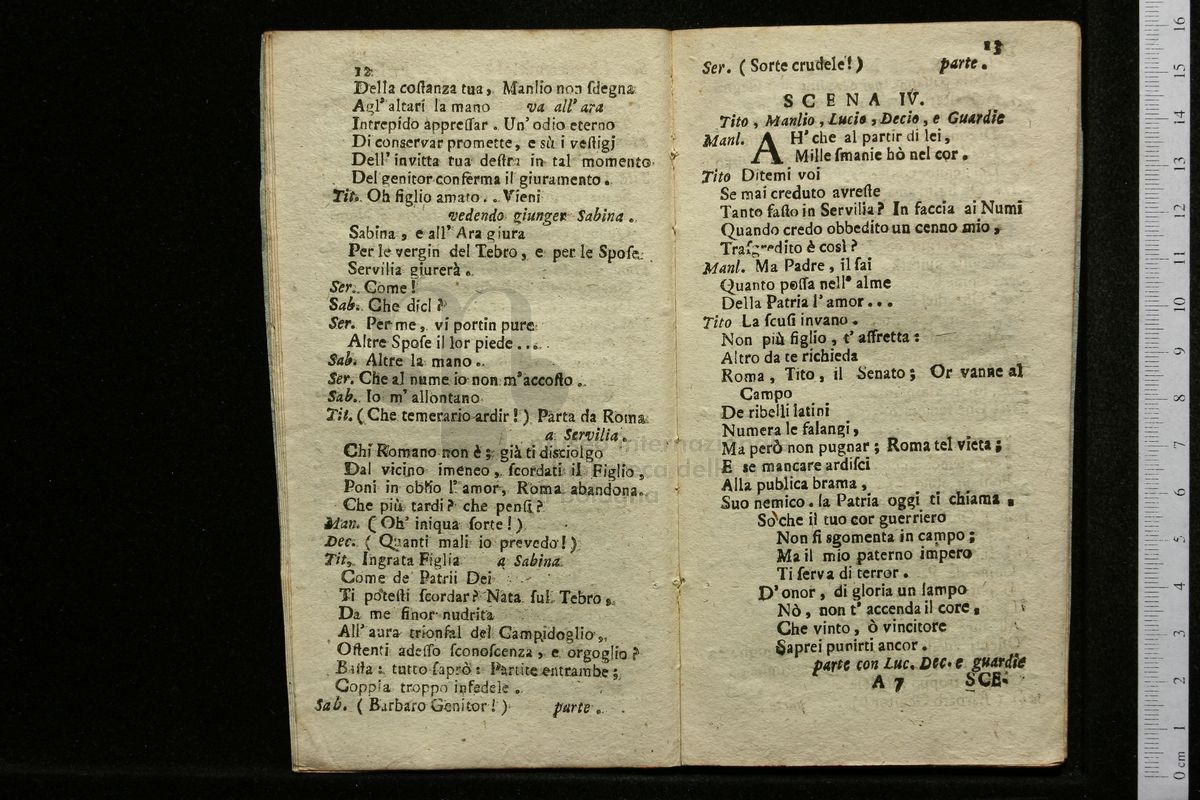 12
Della coſtanza tua, Manlio non ſdegna
Agl' altari la mano va all' ara
Intrepido appreſſar. Un' odio eterno
Di conservar promette, e sù i veſtigj
Dell' invitta tua deſtra in tal momento
Del genitor conferma il giuramento.
Tit. Oh figlio amato.. Vieni
vedendo giunger Sabina.
Sabina, e all' Ara giura
Per le vergin del Tebro, e per le Spoſe
Servilia giurerà.
Ser. Come!
Sab. Che dici?
Ser. Per me, vi portin pure
Altre Spoſe il lor piede....
Sab. Altre la mano.
Ser. Che al nume io non m'accoſto.
Sab. Io m' allontano
Tit. (Che temerario ardir!) Parta da Roma
a Servilia.
Chi Romano non è; già ti disciolgo
Dal vicino imeneo, ſcordati il Figlio,
Poni in oblìo l' amor, Roma abandona.
Che più tardi? che penſi?
Man. (Oh' iniqua ſorte!)
Dec. (Quanti mali io prevedo!)
Tit, Ingrata Figlia a Sabina
Come de' Patrii Dei
Ti poteſti ſcordar? Nata ſul Tebro,
Da me finor nudrita
All' aura trionfal del Campidoglio,
Oſtenti adeſſo ſconoſcenza, e orgoglio?
Baſta: tutto ſaprò: Partite entrambe;
Coppia troppo infedele.
Sab. (Barbaro Genitor!) parte.
13
Ser. (Sorte crudele!) parte.
SCENA IV.
Tito, Manlio, Lucio, Decio, e Guardie
Manl. AH' che al partir di lei,
Mille ſmanie hò nel cor.
Tito Ditemi voi
Se mai creduto avreſte
Tanto faſto in Servilia? In faccia ai Numi
Quando credo obbedito un cenno mio,
Traſgredito è così?
Manl. Ma Padre, il ſai
Quanto poſſa nell' alme
Della Patria l' amor...
Tito La ſcuſi invano.
Non più figlio, t' affretta:
Altro da te richieda
Roma, Tito, il Senato; Or vanne al
Campo
De ribelli latini
Numera le falangi,
Ma però non pugnar; Roma tel vieta;
E se mancare ardiſci
Alla publica brama,
Suo nemico la Patria oggi ti chiama.
So che il tuo cor guerriero
Non ſi sgomenta in campo;
Ma il mio paterno impero
Ti ſerva di terror.
D' onor, di gloria un lampo
Nò, non t' accenda il core,
Che vinto, ò vincitore
Saprei punirti ancor.
parte con Luc. Dec. e guardie
A 7 SCE-